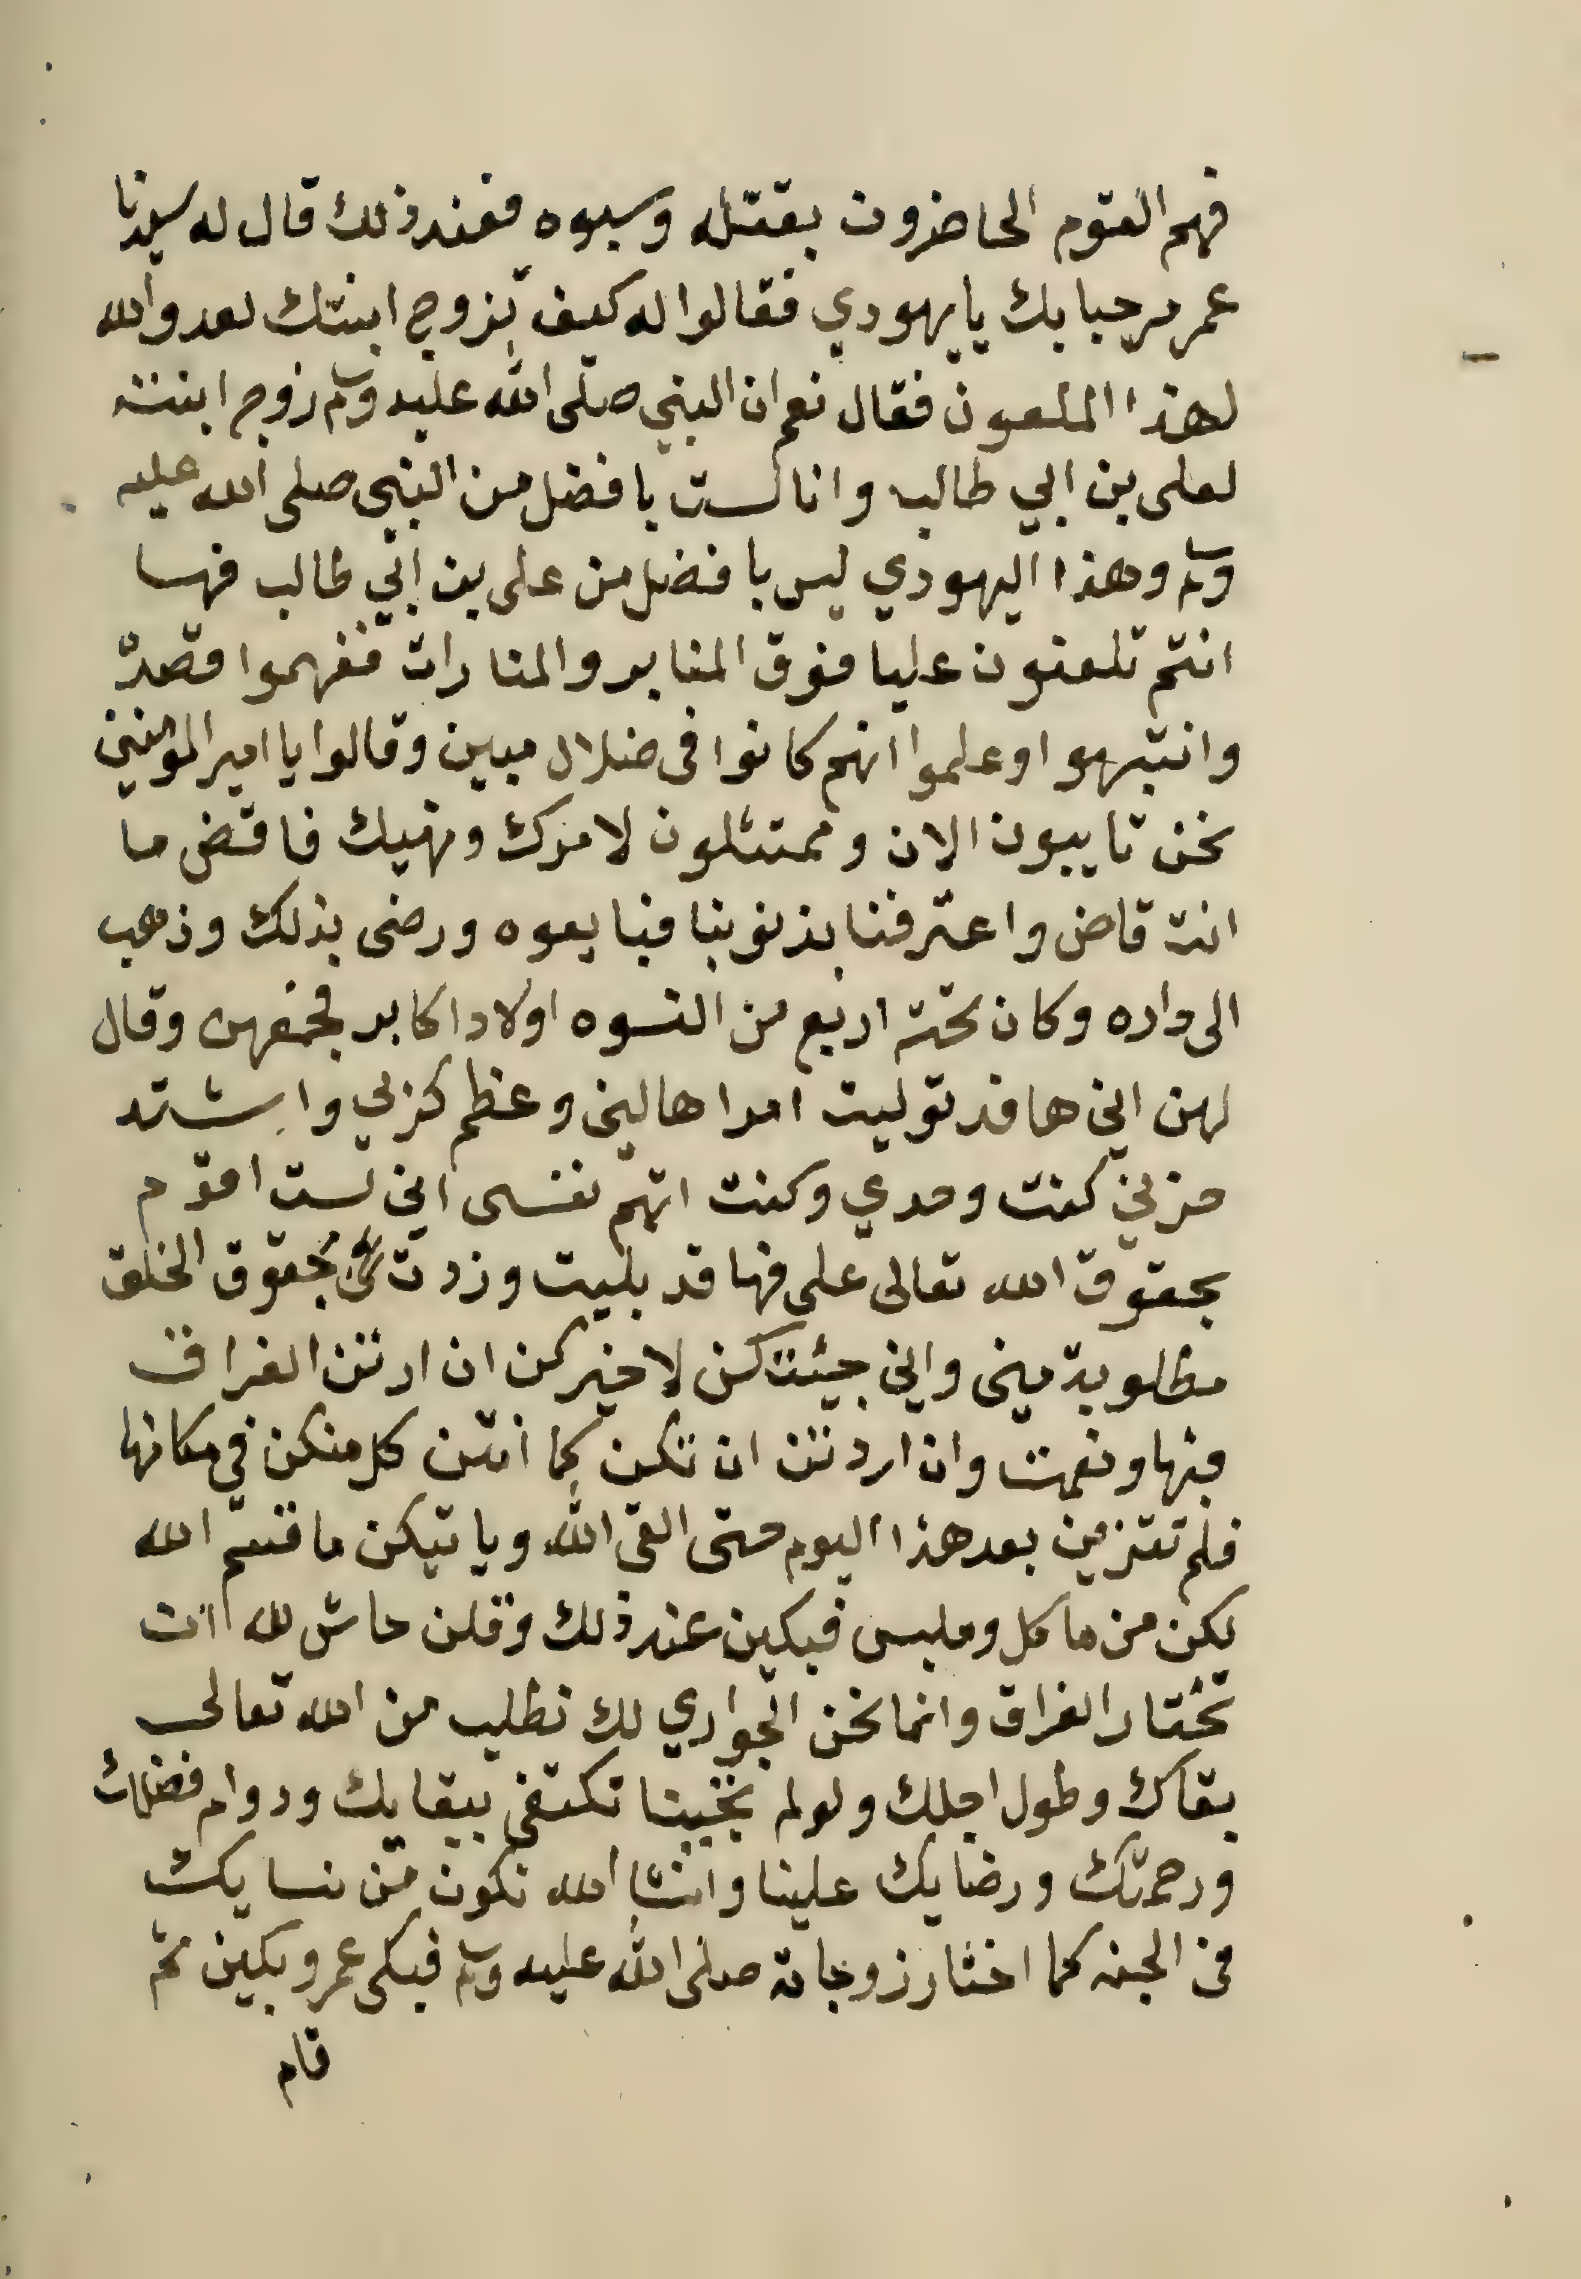 فهم القوم الحاضرون بقتله وسبوه فعند ذلك قال له سيدنا
عمر مرحبا بك يا يهودي فقالوا له كيف تزوج ابنتك لعدو الله
لهذا الملعون فقال نعم ان النبي صلى الله عليه وسلم زوج ابنته
لعلى بن ابي طالب وانا لست بافضل من النبي صلى الله عليه
وسلم وهذا اليهودي ليس بافضل من على بن ابي طالب فهسا
انتم تلعنون عليا فوق المنابر والمنارات ففهموا قصده
وانتبهوا وعلموا انهم كانوا فى ضلال مبين وقالوا يا امير المؤمنين
نحن تايبون الان وممتثلون لامرك ونهيك فاقض ما
انت قاض واعترفنا بذنوبنا فبايعوه ورضى بذلك وذهب
الى داره وكان تحته اربع من النسوه اولاد اكابر فجمعهن وقال
لهن اني ها قد توليت امرا هالنى وعظم كربي واشتد
حزني كنت وحدي وكنت اتهم نفسى انى لست اقوم
بحقوق الله تعالى على فها قد بليت وزدت بحقوق الخلق
مطلوبة منى واني جيئتكن لاخيركن ان اردتن الفراق
فبها ونعمت وان اردتن ان تكن كما انتن كل منكن في مكانها
فلم تقتربن بعد هذا اليوم حتى القى الله وياتيكن ما قسم الله
لكن من ماكل وملبس فبكين عند ذلك وقلن حاش لله انت
تختار الفراق وانما نحن الجواري لك نطلب من الله تعالى
بقاك وطول اجلك ولو لم تجينا نكتفي ببقايك ودوام فضلك
ورحمتك ورضايك علينا وانشا الله نكون من نسايك
فى الجنه كما اختار زوجاته صلى الله عليه وسلم فبكى عمر وبكين ثم
قام